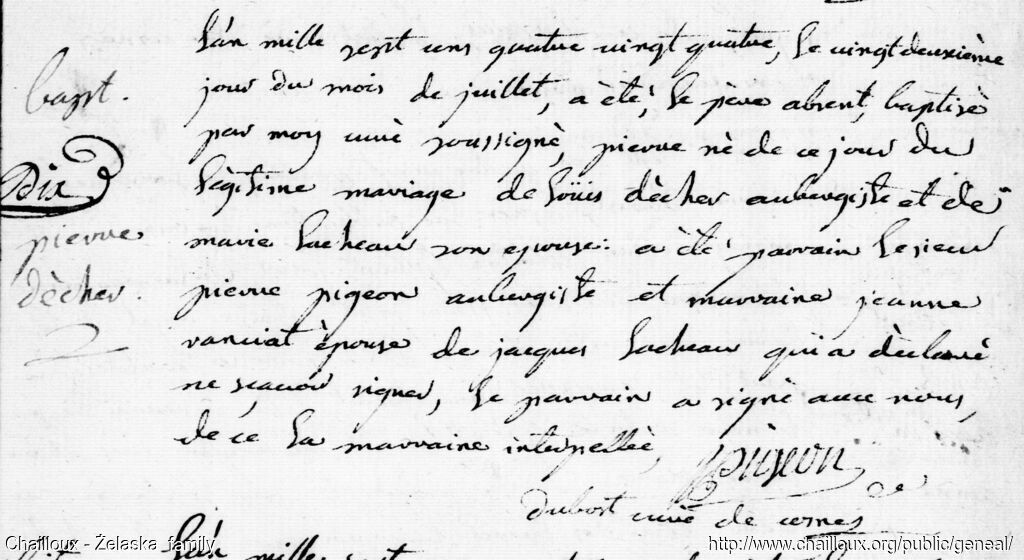 L'an mille sept cens quatre vingt quatre, le vingt deuxième
jour du mois de juillet, a été, le père absent, baptisé
par moy curé soussigné, pierre né de ce jour du
légitime mariage de Loüis dècher aubergiste et de
marie Lacheau son epouse: a été parrain le sieur
pierre pigeon aubergiste et marraine jeanne
vanciat épouse de jacques Lacheau qui a déclaré
ne sçavoir signer, le parrain a signé avec nous,
de ce la marraine interpellée,
pigeon
dubost curé de cernes
bapt.
Dix
pierre
dècher.
L'an mille sept
Chailloux - Żelaska family
http://www.chailloux.org/public/geneal/